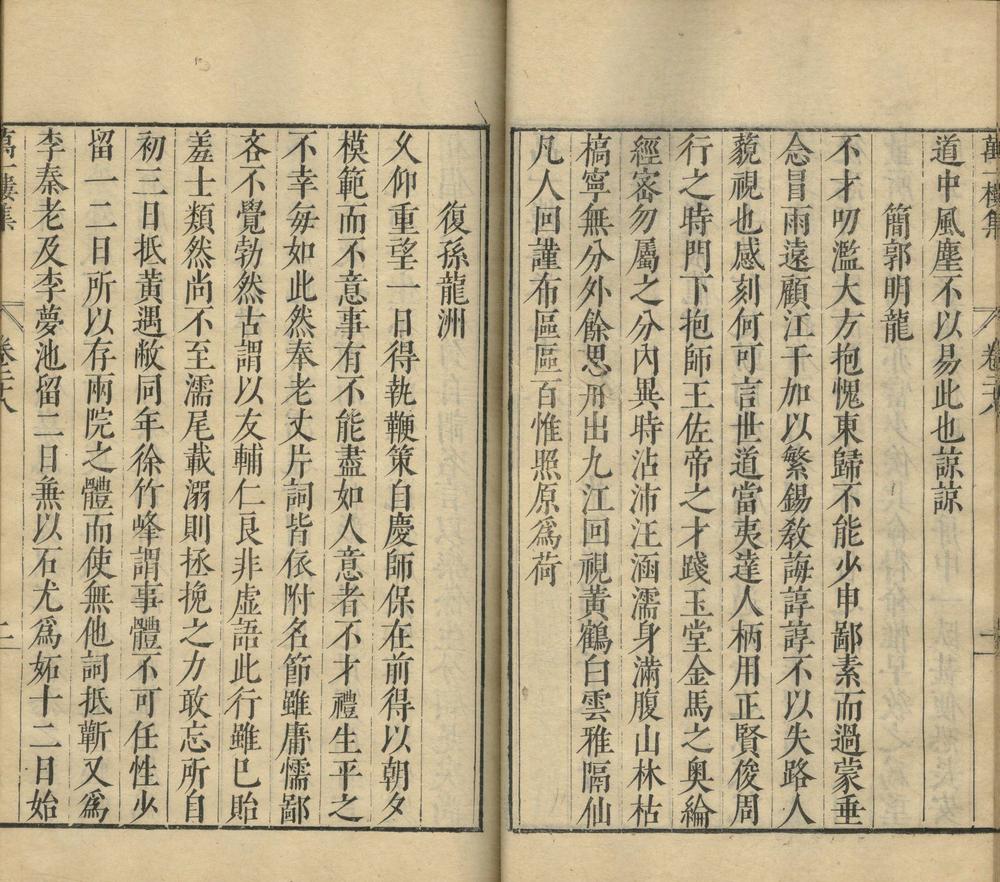 萬一樓集 卷三十八
道中風塵不以易此也諒諒
簡郭明龍
不才叨濫大方抱愧東歸不能少申鄙素而過蒙垂
念冒雨遠顧江干加以繁錫敎誨諄諄不以失路人
藐視也感刻何可言世道當夷達人柄用正賢俊周
行之時門下抱師王佐帝之才踐玉堂金馬之奧綸
經密勿屬之分內異時沾沛汪涵濡身滿腹山林枯
槁寧無分外餘思舟出九江回視黃鶴白雲雅隔仙
凡人回謹布區區百惟照原爲荷
復孫龍洲
乆仰重望一日得執鞭策自慶師保在前得以朝夕
模範而不意事有不能盡如人意者不才禮生平之
不幸每如此然奉老丈片詞皆依附名節雖庸懦鄙
吝不覺勃然古謂以友輔仁良非虛語此行雖已貽
羞士類然尚不至濡尾載溺則拯挽之力敢忘所自
初三日抵黃遇敝同年徐竹峰謂事體不可任性少
留一二日所以存兩院之體而使無他詞抵蘄又爲
李秦老及李夢池留二日無以石尤爲妬十二日始
萬一樓集 卷三十八 二